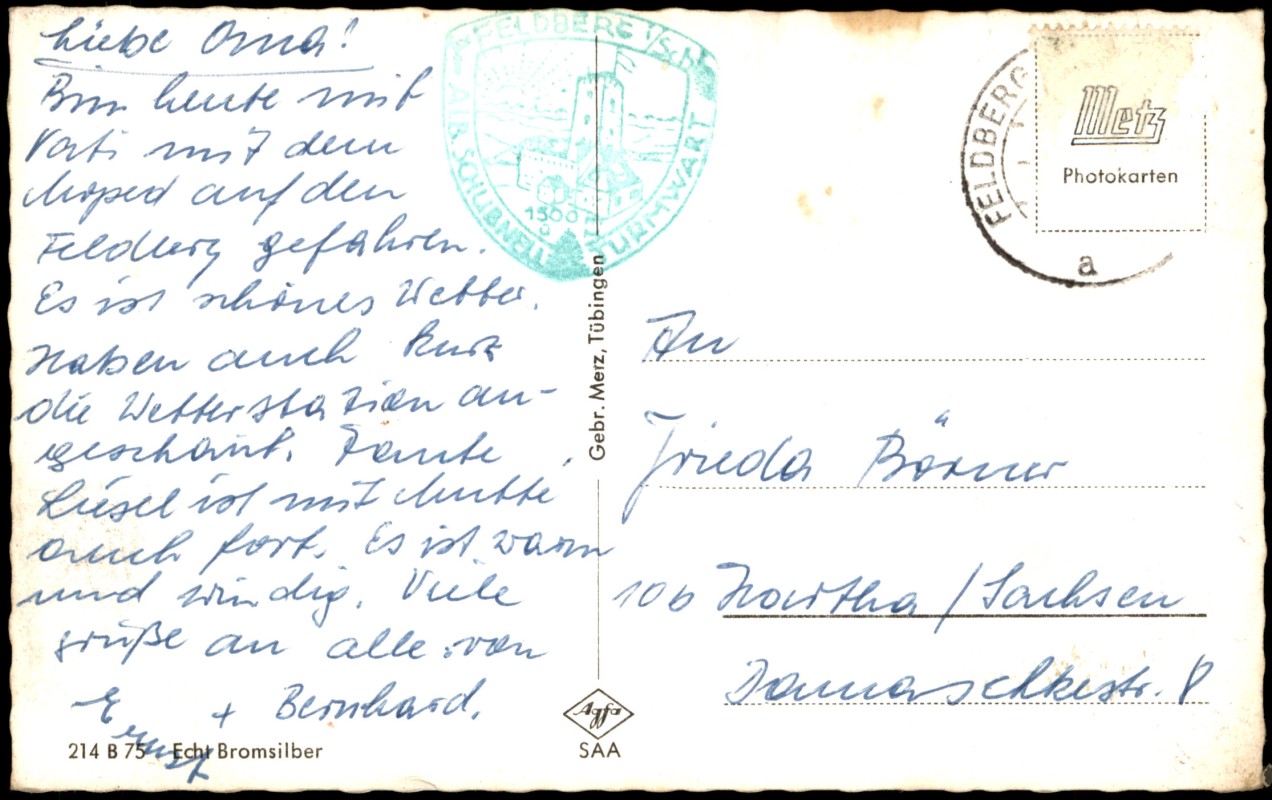 Liebe Oma!
Bin heute mit
Vati mit dem
Moped auf den
Feldberg gefahren.
Es ist schönes Wetter.
Haben auch kurz
die Wetterstation an-
geschaut. Tante
Liesel ist mit Mutti
auch fort. Es ist warm
und windig. Viele
grüße an alle von
Ernst + Bernhard.
214 B 75 Echt Bromsilber
FELDBERG
TURMWART
1500
Gebr. Merz, Tübingen
Agfa
SAA
FELDBERG
a
Metz
Photokarten
An
Frieda Börner
Hartha / Sachsen
Damaschkestr. 8